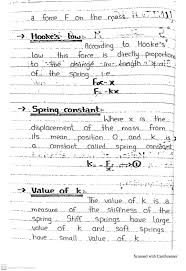 a force F on the mass.
→ Hooke's law:-
According to Hooke's
law this force is directly proportional
to the change in length
of the spring i.e.
F∝-x
F=-kx
→ Spring constant:-
Where x is the
displacement of the mass from
its mean position O, and k, is
a constant called spring constant:
k=-F/x →①
→ Value of k:-
The value of k is a
measure of the stiffness of the
spring. Stiff springs have large
value of k and soft springs
have small value of k.
Scanned with CamScanner